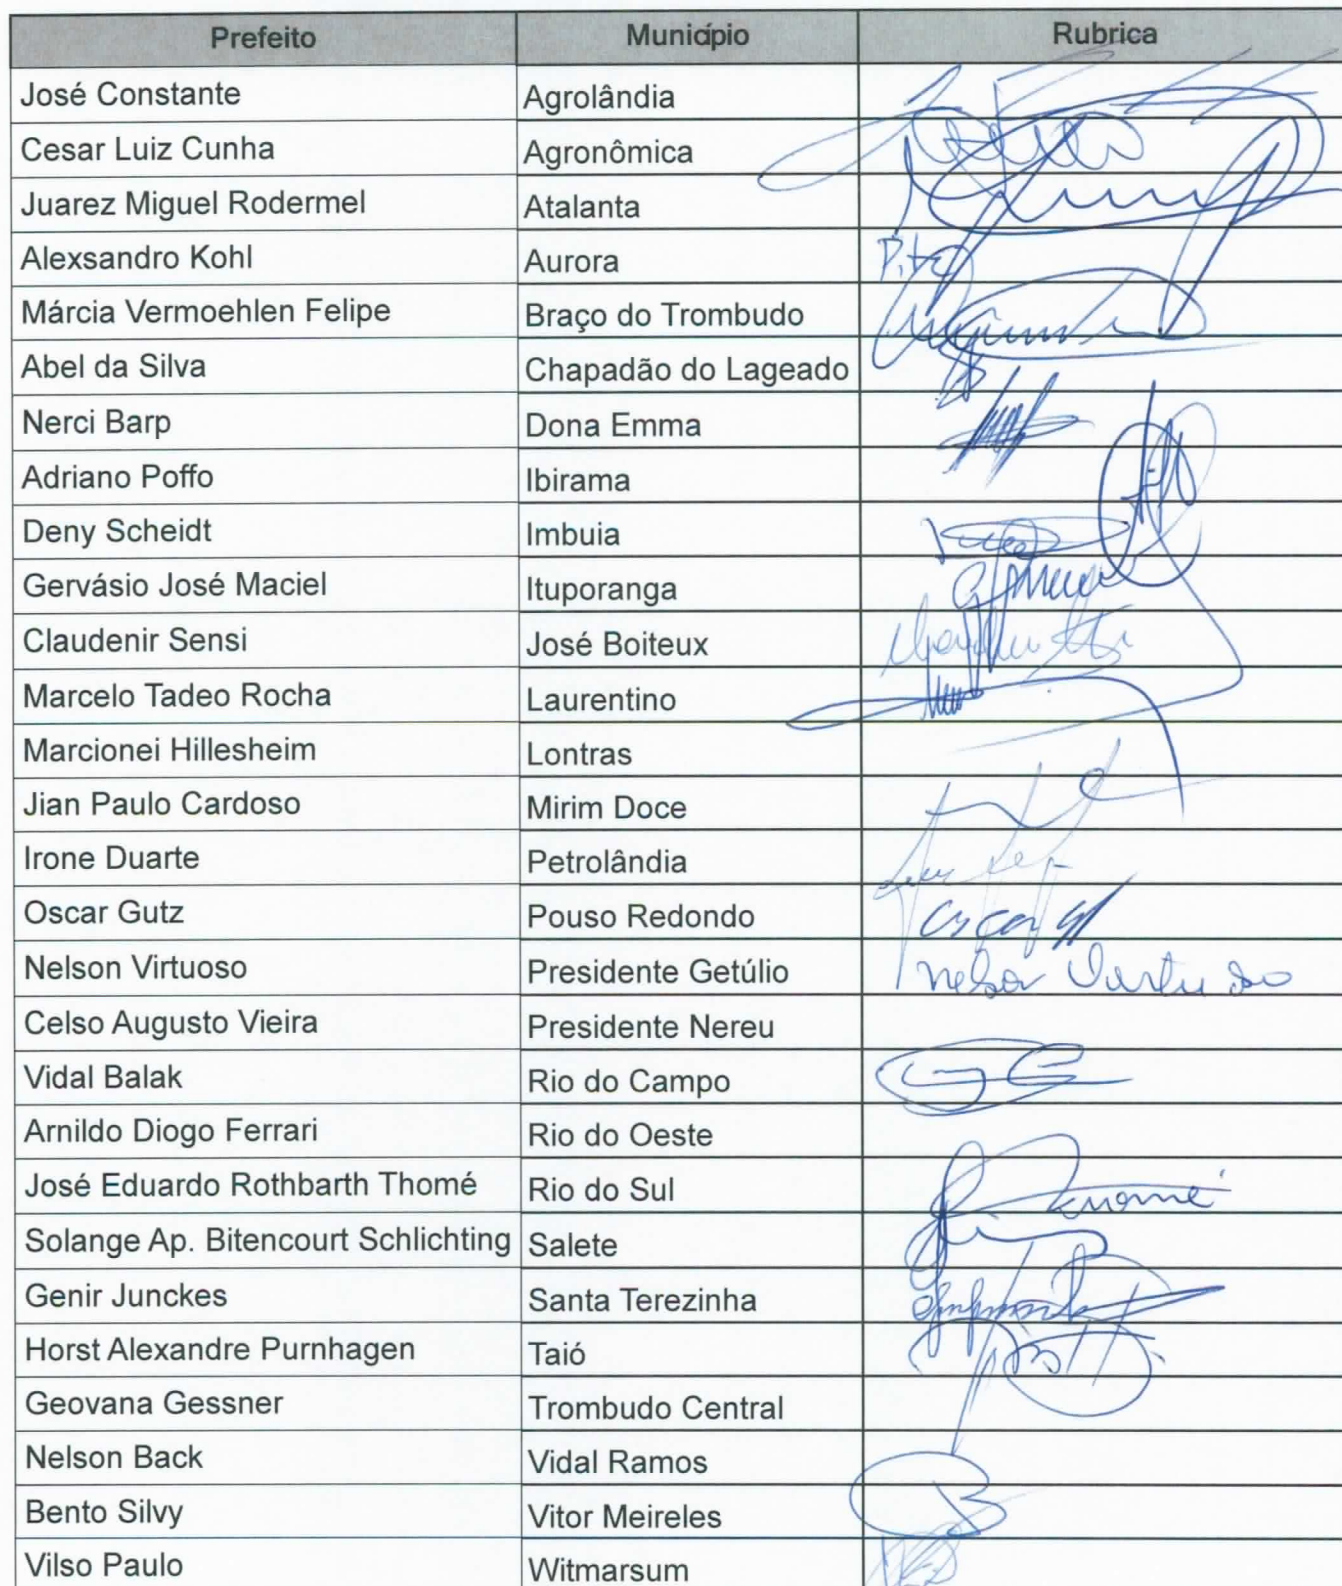 Prefeito Município Rubrica
José Constante Agrolândia
Cesar Luiz Cunha Agronômica
Juarez Miguel Rodermel Atalanta
Alexsandro Kohl Aurora
Márcia Vermoehlen Felipe Braço do Trombudo
Abel da Silva Chapadão do Lageado
Nerci Barp Dona Emma
Adriano Poffo Ibirama
Deny Scheidt Imbuia
Gervásio José Maciel Ituporanga
Claudenir Sensi José Boiteux
Marcelo Tadeo Rocha Laurentino
Marcionei Hillesheim Lontras
Jian Paulo Cardoso Mirim Doce
Irone Duarte Petrolândia
Oscar Gutz Pouso Redondo Oscar
Nelson Virtuoso Presidente Getúlio Nelson Virtuoso
Celso Augusto Vieira Presidente Nereu
Vidal Balak Rio do Campo
Arnildo Diogo Ferrari Rio do Oeste
José Eduardo Rothbarth Thomé Rio do Sul
Solange Ap. Bitencourt Schlichting Salete
Genir Junckes Santa Terezinha
Horst Alexandre Purnhagen Taió
Geovana Gessner Trombudo Central
Nelson Back Vidal Ramos
Bento Silvy Vitor Meireles
Vilso Paulo Witmarsum